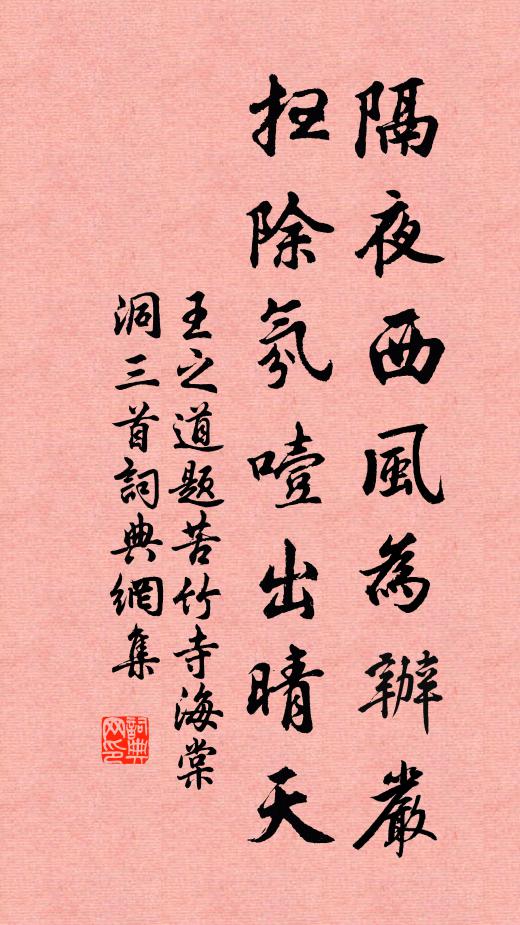 隔夜西風為辦嚴
扫除氛噎出晴天
王之道题苦竹寺海棠
洞三首詞典網集
詞典
网印